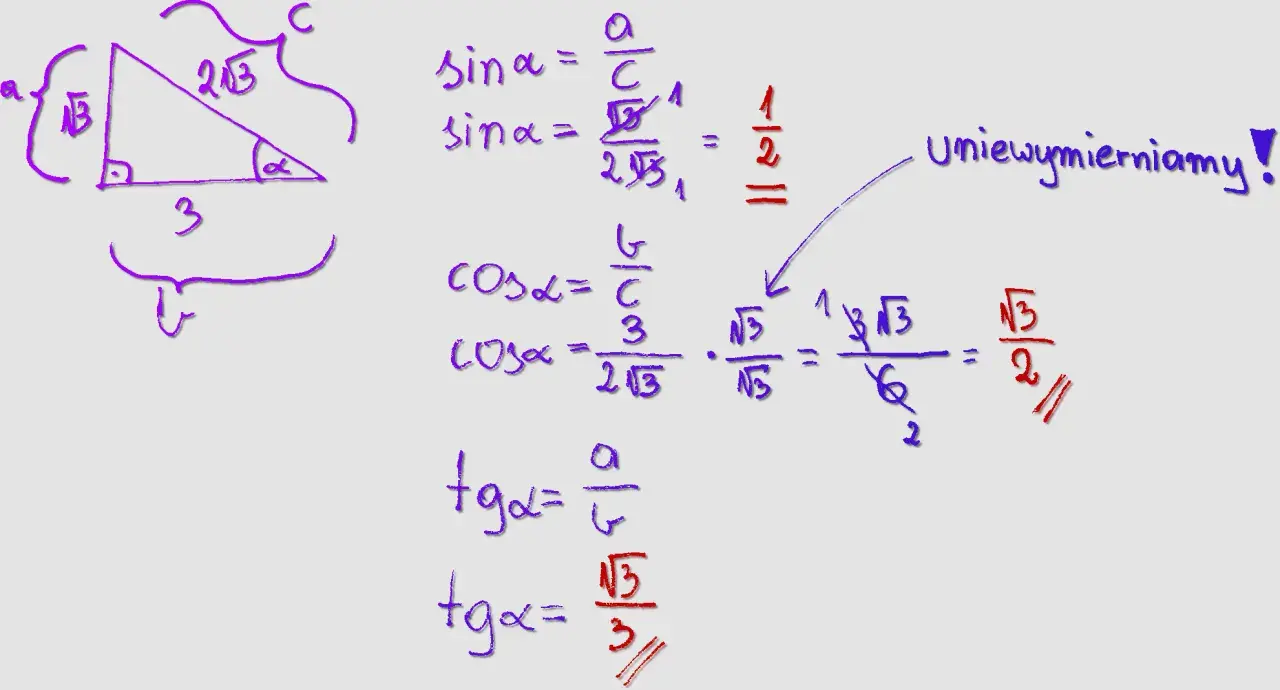 c
a
√3
2√3
α
3
b
sinα = a/c
sinα = √3/2√3 1 1 = 1/2
uniewymierniamy!
cosα = b/c
cosα = 3/2√3 · √3/√3 = 1 3√3/6 2 = √3/2
tgα = a/b
tgα = √3/3